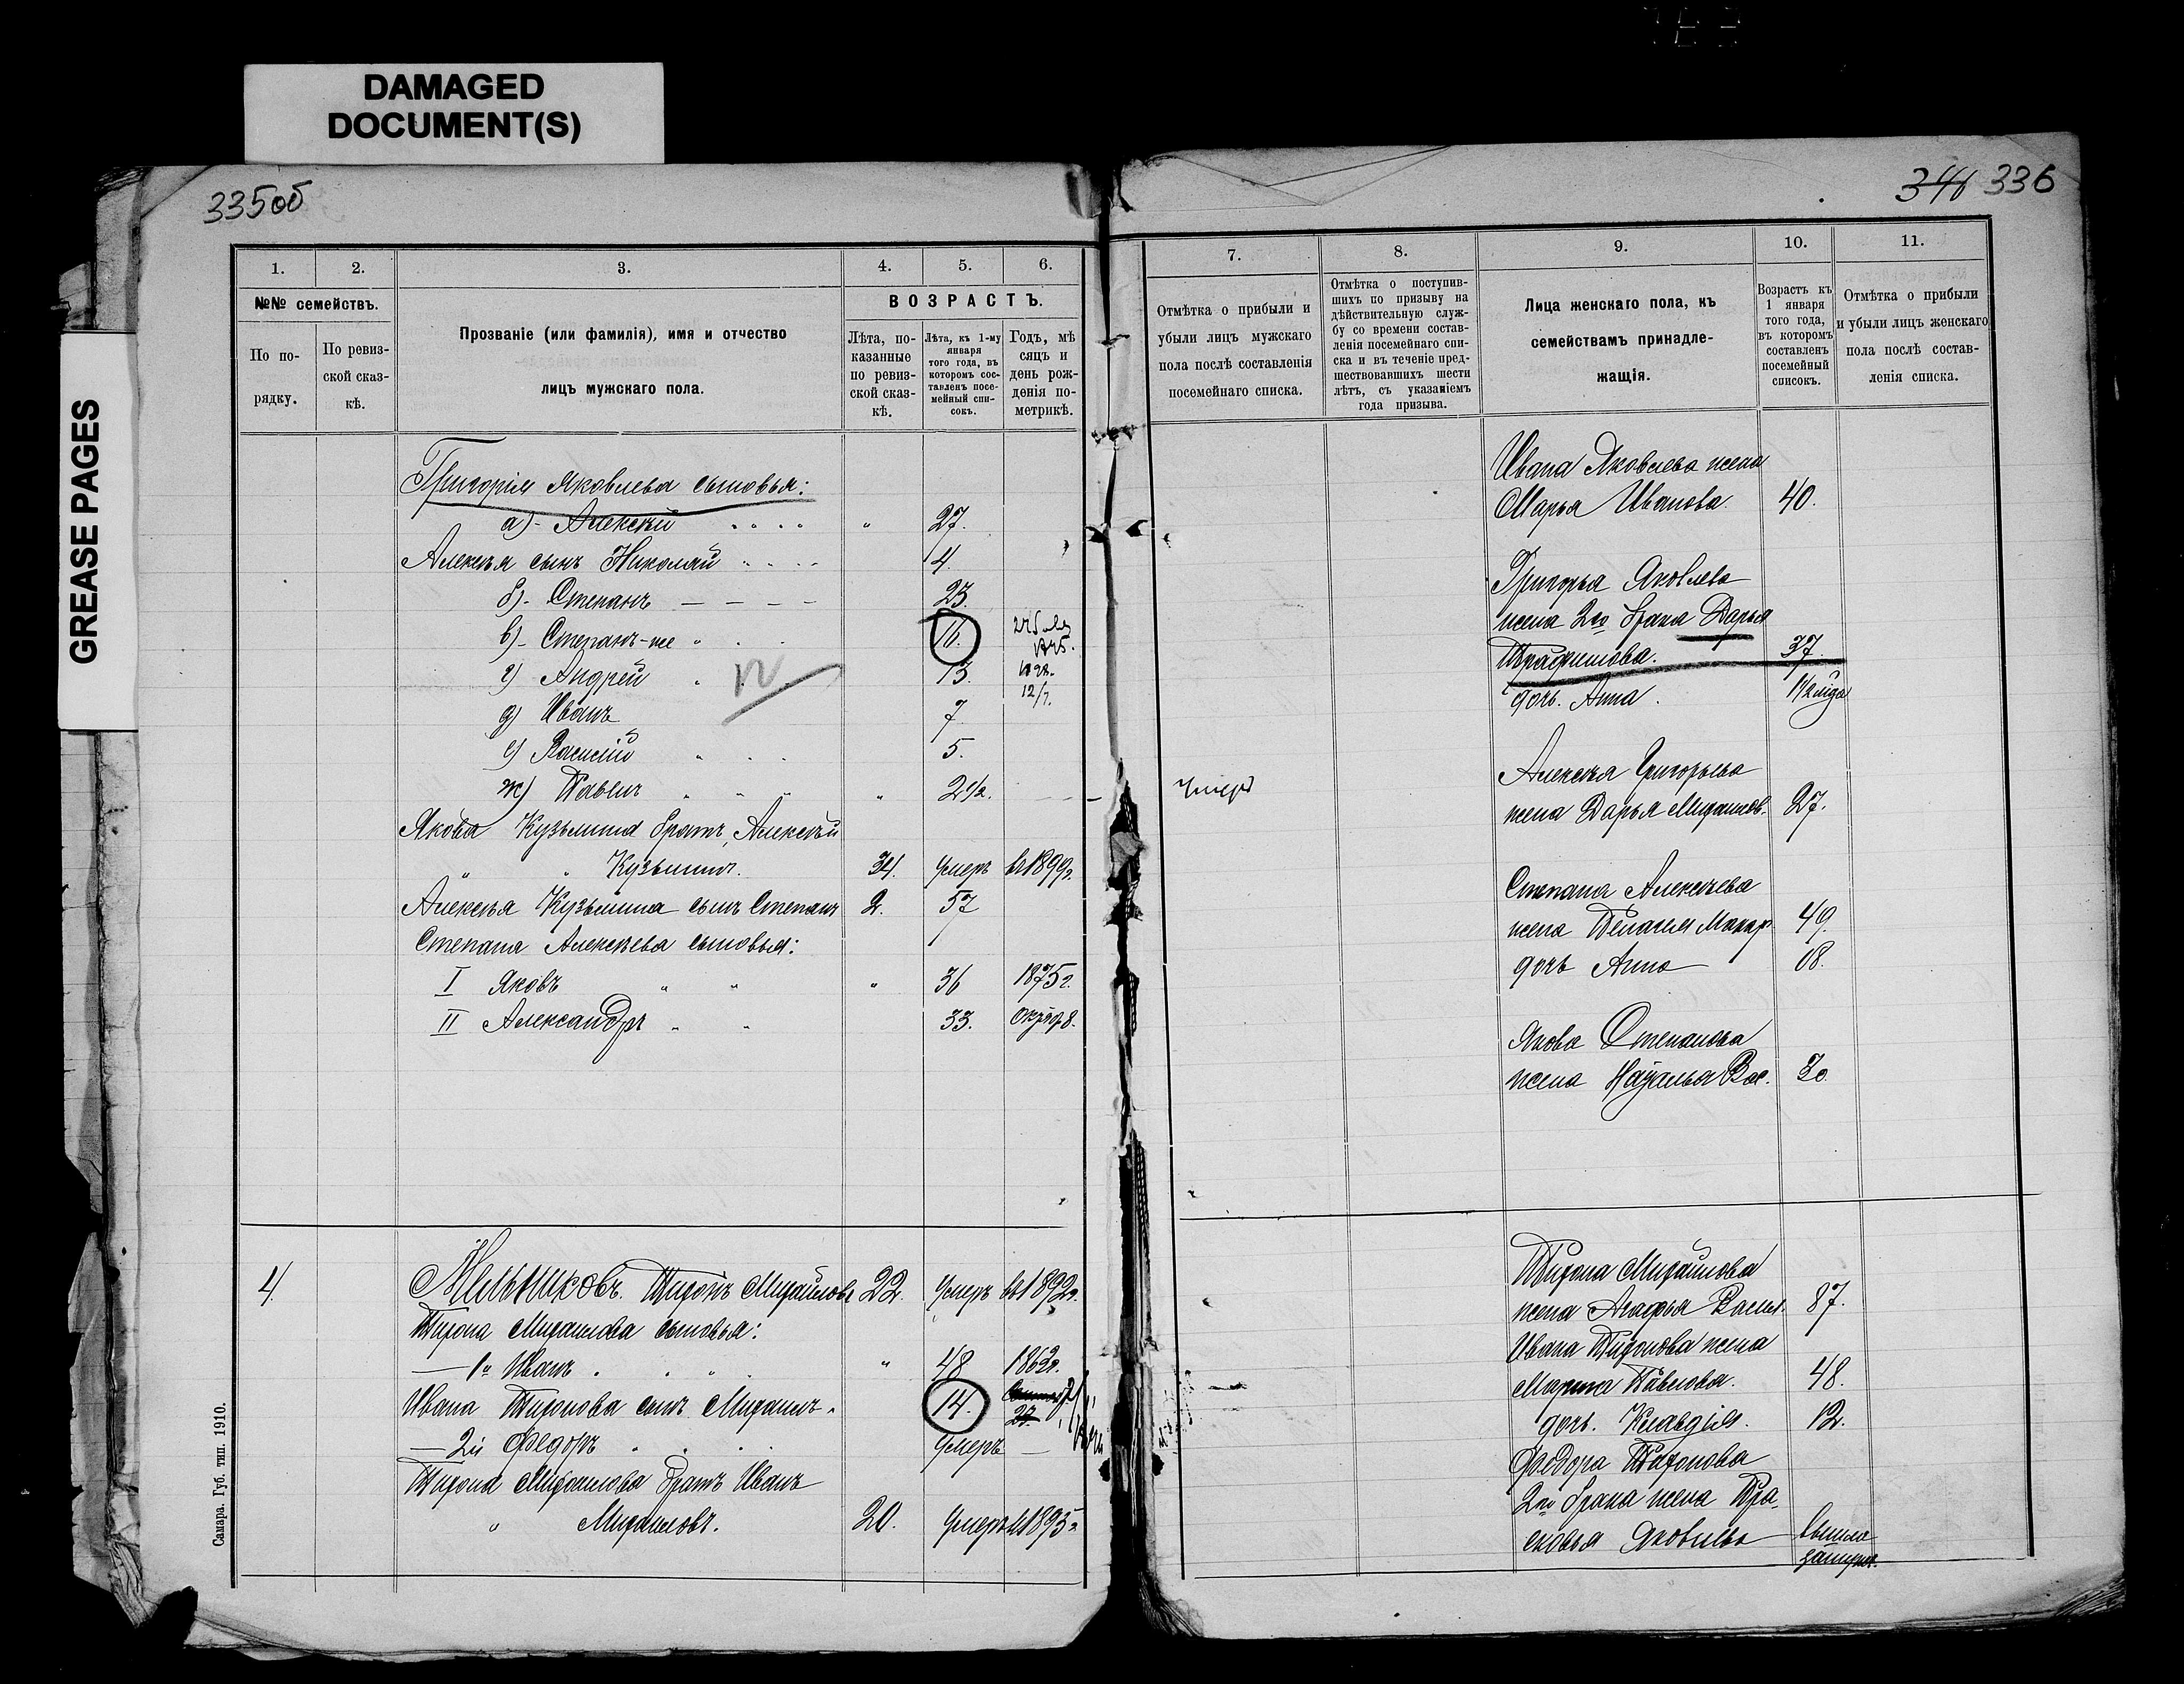 DAMAGED
DOCUMENT(S)
GREASE PAGES
335об
1.
2.
3.
4.
5.
6.
№№ семействъ.
По по-
рядку.
По ревиз-
ской сказ-
кѣ.
Прозваніе (или фамилія), имя и отчество
лицъ мужскаго пола.
ВОЗРАСТЪ.
Лѣта, по-
казанные
по ревиз-
ской сказ-
кѣ.
Лѣта, къ 1-му
января
того года, въ
которомъ сос-
тавленъ посе-
мейный спи-
сокъ.
Годъ, мѣ
сяцъ и
день рож-
денія по-
метрикѣ.
Григорія Яковлева сыновья:
а)- Алексѣй " 27.
Алексѣя сынъ Николай 4
б)- Степанъ — — — — 23.
в)- Степанъ-же " 16.
г) Андрей " 13.
12/7.
д) Иванъ 7
е) Василій " 5.
ж) Павелъ " " " " 2 1/2.
Якова Кузьмина братъ, Алексѣй
" " Кузьминъ. 34. Умеръ въ 1899г.
Алексѣя Кузьмина сынъ Степанъ 2. 57
Степана Алексѣева сыновья:
I Яковъ " " " 36 1875г.
II Александръ " " 33.
4. Мельниковъ. Тихонъ Михайловъ 22. Умеръ въ 1892г.
Тихона Михайлова сыновья:
— 1й Иванъ " " " 48 1862г.
Ивана Тихонова сынъ Михаилъ " 14.
27.
— 2й Федоръ " Умеръ —
Тихона Михайлова братъ Иванъ
" Михайловъ. 20. Умеръ въ 1895г.
Самара. Губ. тип. 1910.
346 336
7.
8.
9.
10.
11.
Отмѣтка о прибыли и
убыли лицъ мужскаго
пола послѣ составленія
посемейнаго списка.
Отмѣтка о поступив-
шихъ по призыву на
дѣйствительную служ-
бу со времени состав-
ленія посемейнаго спи-
ска и въ теченіе пред-
шествовавшихъ шести
лѣтъ, съ указаніемъ
года призыва.
Лица женскаго пола, къ
семействамъ принадле-
жащія.
Возрастъ къ
1 января
того года,
въ которомъ
составленъ
посемейный
списокъ.
Отмѣтка о прибыли
и убыли лицъ женскаго
пола послѣ состав-
ленія списка.
Ивана Яковлева жена
Марья Иванова. 40.
Григорья Яковлева
жена 2го брака Дарья
Трафимова. 37.
дочь. Анна. 1 1/2 года
Умеръ
Алексѣя Григорьева
жена Дарья Михайлов. 27.
Степана Алексѣева
жена Пелагея Макар. 49.
дочь Анна 18.
Якова Степанова
жена Наталья Вас. 30.
Тихона Михайлова
жена Агафья Васил. 87.
Ивана Тихонова жена
Марина Павлова. 48.
дочь. Клавдія. 12.
Федора Тихонова
2го брака жена Пра-
сковья Яковлева вышла
замужъ.